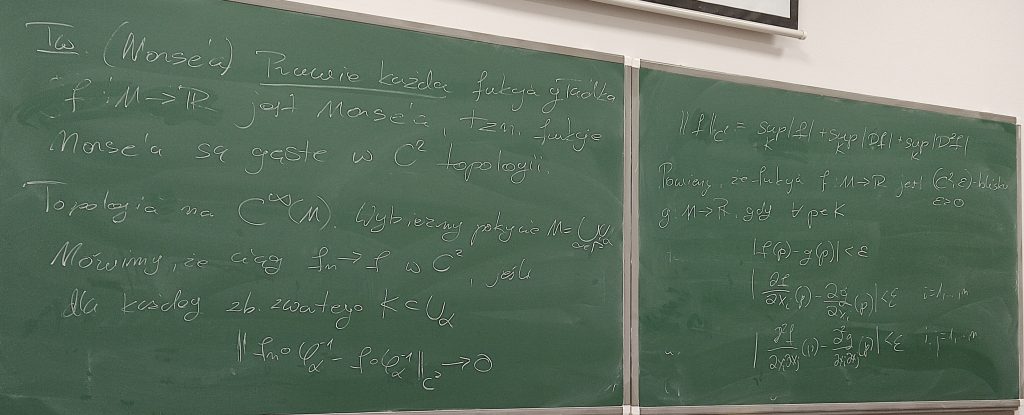 Tw. (Morse'a) Prawie każda funkcja gładka
f : M → ℝ jest Morse'a, tzn. funkcje
Morse'a są gęste w C² topologii.
Topologia na C^∞(M). Wybierzmy pokrycie M = ⋃ U_α
Mówimy, że ciąg fₙ → f w C², jeśli
dla każdego zb. zwartego K ⊂ U_α
‖fₙ∘φ_α⁻¹ − f∘φ_α⁻¹‖_C² → 0
‖f‖_C² = sup_K |f| + sup_K |Df| + sup_K |D²f|
Powiemy, że funkcja f : M → ℝ jest (C², ε)-blisko
ε>0
g : M → ℝ, gdy ∀ p ∈ K
|f(p) − g(p)| < ε
|∂f/∂xᵢ(p) − ∂g/∂xᵢ(p)| < ε i=1,...,n
|∂²f/∂xᵢ∂xⱼ(p) − ∂²g/∂xᵢ∂xⱼ(p)| < ε i,j=1,...,n